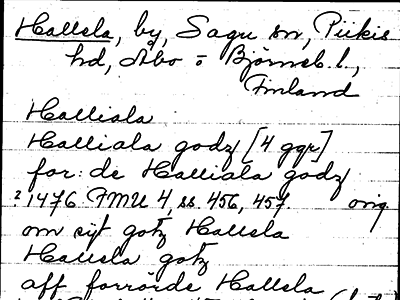 Hallela, by, Sagu sn, Piikis
hd, Åbo o Björneb. l.,
Finland
Halliala
Halliala godz [4 ggr]
for: de Halliala godz
? 1476 FMU 4, ss. 456, 457 orig
om sijt gotz Hallela
Hallela gotz
aff forrörde Hallela